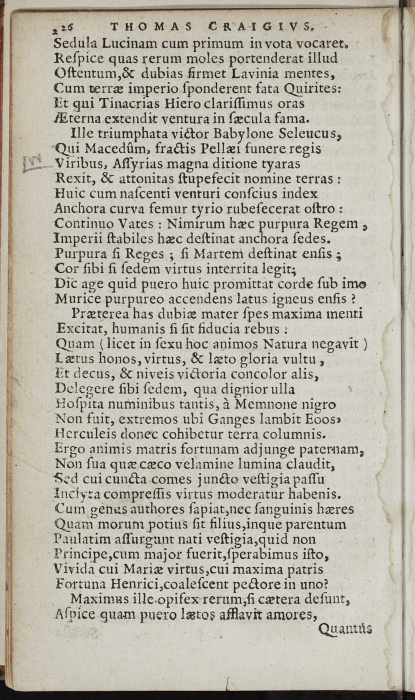 226 THOMAS CRAIGIVS.
Sedula Lucinam cum primum in vota vocaret.
Reſpice quas rerum moles portenderat illud
Oſtentum,& dubias firmet Lavinia mentes,
Cum terræ imperio ſponderent fata Quirites:
Et qui Tinacrias Hiero clariſſimus oras
Æterna extendit ventura in ſæcula fama.
Ille triumphata victor Babylone Seleucus,
Qui Macedûm, fractis Pellæi funere regis
Viribus, Aſſyrias magna ditione tyaras
Rexit, & attonitas ſtupefecit nomine terras:
Huic cum naſcenti venturi conſcius index
Anchora curva femur tyrio rubefecerat oſtro:
Continuo Vates: Nimirum hæc purpura Regem,
Imperii ſtabiles hæc deſtinat anchora ſedes.
Purpura ſi Reges; ſi Martem deſtinat enſis;
Cor ſibi ſi ſedem virtus interrita legit;
Dic age quid puero huic promittat corde ſub imo
Murice purpureo accendens latus igneus enſis?
Præterea has dubiæ mater ſpes maxima menti
Excitat, humanis ſi ſit fiducia rebus:
Quam (licet in ſexu hoc animos Natura negavit)
Lætus honos, virtus, & læto gloria vultu,
Et decus, & niveis victoria concolor alis,
Delegere ſibi ſedem, qua dignior ulla
Hoſpita numinibus tantis, à Memnone nigro
Non fuit, extremos ubi Ganges lambit Eoos,
Herculeis donec cohibetur terra columnis.
Ergo animis matris fortunam adjunge paternam,
Non ſua quæ cæco velamine lumina claudit,
Sed cui cuncta comes juncto veſtigia paſſu
Inclyta compreſſis virtus moderatur habenis.
Cum genus authores ſapiat,nec ſanguinis hæres
Quam morum potius ſit filius,inque parentum
Paulatim aſſurgunt nati veſtigia,quid non
Principe,cum major fuerit,ſperabimus iſto,
Vivida cui Mariæ virtus,cui maxima patris
Fortuna Henrici,coaleſcent pectore in uno?
Maximus ille opifex rerum,ſi cætera deſunt,
Aſpice quam puero lætos afflavit amores,
Quantus